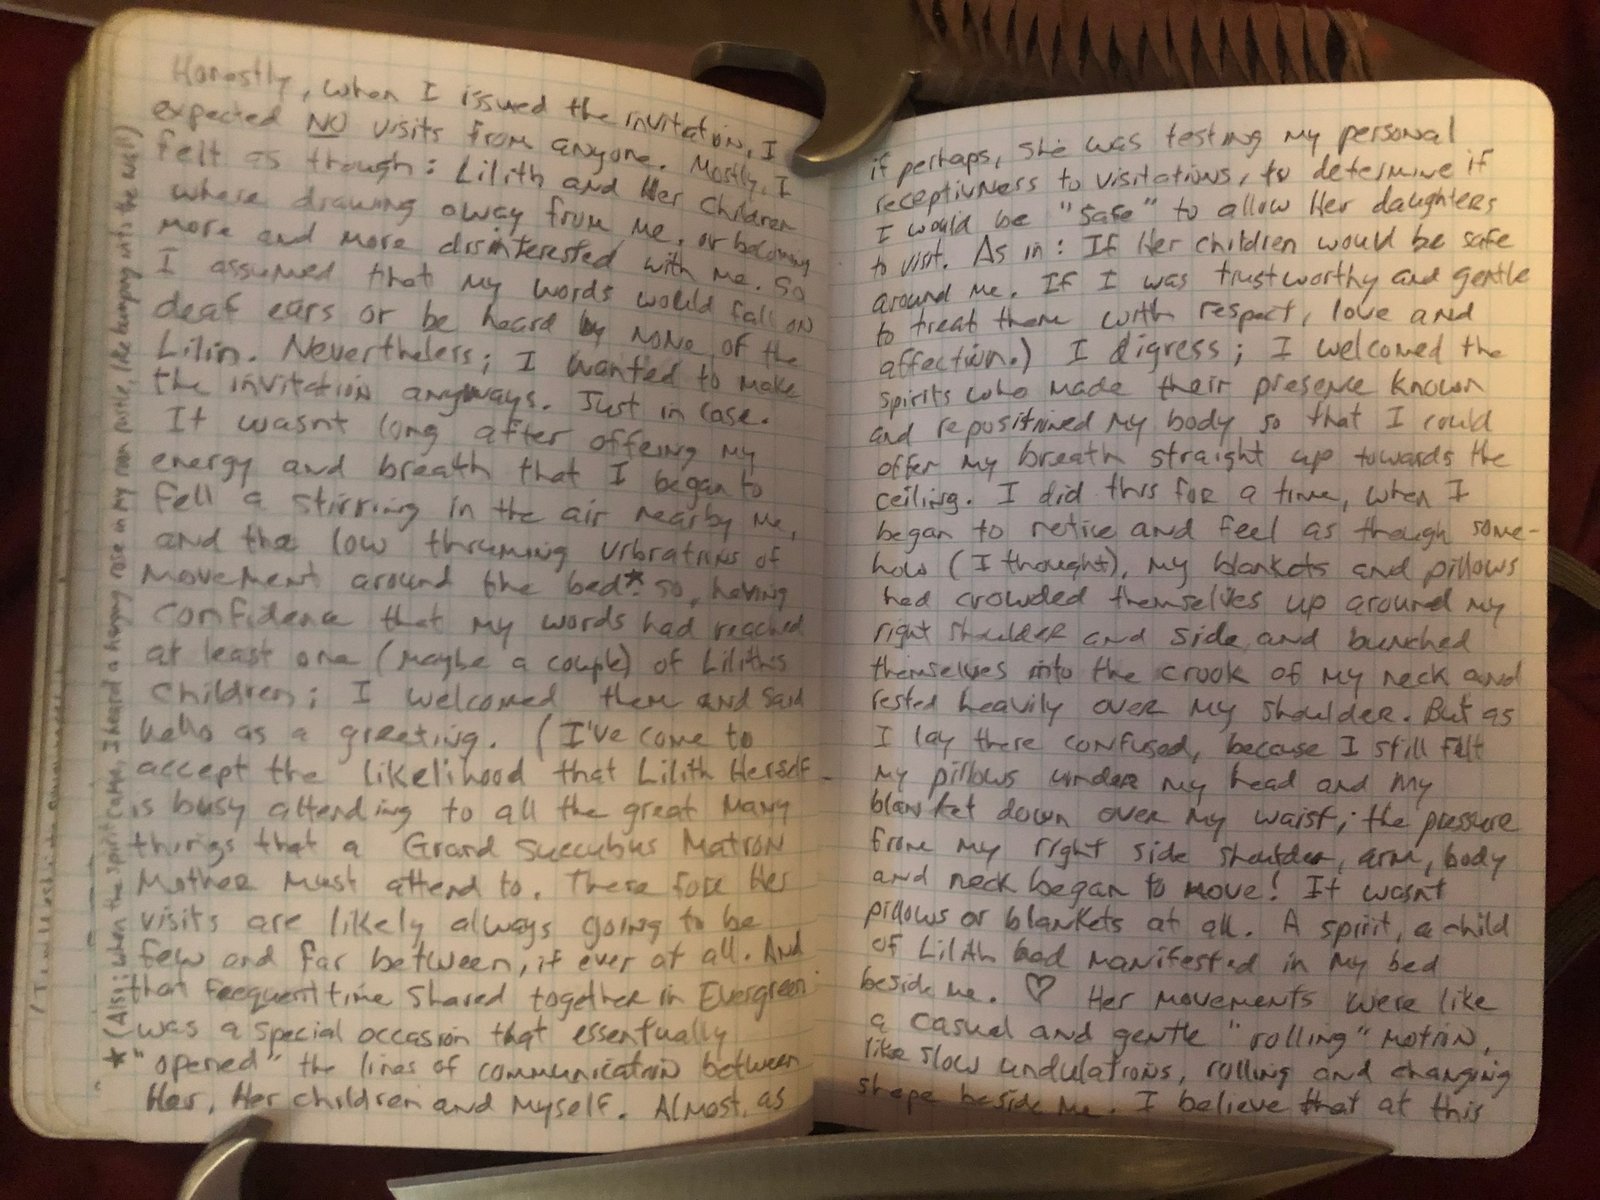 Honestly, when I issued the invitation, I
expected NO visits from anyone. Mostly, I
felt as though: Lilith and Her Children
where drawing away from me, or becoming
more and more disinterested with me. So
I assumed that my words would fall on
deaf ears or be heard by none of the
Lilin. Nevertheless; I wanted to make
the invitation anyways. Just in case.
It wasnt long after offeing my
energy and breath that I began to
fell a stirring in the air nearby me,
and the low thruming vibrations of
movement around the bed*. so, having
confidence that my words had reached
at least one (maybe a couple) of Liliths
children; I welcomed them and said
hello as a greeting. (I've come to
accept the likelihood that Lilith Herself
is busy attending to all the great many
things that a Grand Succubus Matron
Mother must attend to. There fore Her
visits are likely always going to be
few and far between, if ever at all. And
that frequent time shared together in Evergreen
was a special occasion that essentually
"opened" the lines of communication between
Her, Her children and myself. Almost, as
* (Also; when the spirit came, I heard a hanging rose in my room rustle, like bumping into the wall)
if perhaps, she was testing my personal
receptivness to visitations, to determine if
I would be "safe" to allow Her daughters
to visit. As in: If Her children would be safe
around me. If I was trustworthy and gentle
to treat them with respect, love and
affection.) I digress; I welcomed the
spirits who made their presence known
and repositioned my body so that I could
offer my breath straight up towards the
ceiling. I did this for a time, when I
began to notice and feel as though some-
how (I thought), my blankets and pillows
had crowded themselves up around my
right shoulder and side and bunched
themselves into the crook of my neck and
rested heavily over my shoulder. But as
I lay there confused, because I still felt
my pillows under my head and my
blanket down over my waist; the pressure
from my right side shoulder, arm, body
and neck began to move! It wasnt
pillows or blankets at all. A spirit, a child
of Lilith had manifested in my bed
beside me. ♡ Her movements were like
a casual and gentle "rolling" motion,
like slow undulations, rolling and changing
shape beside me. I believe that at this